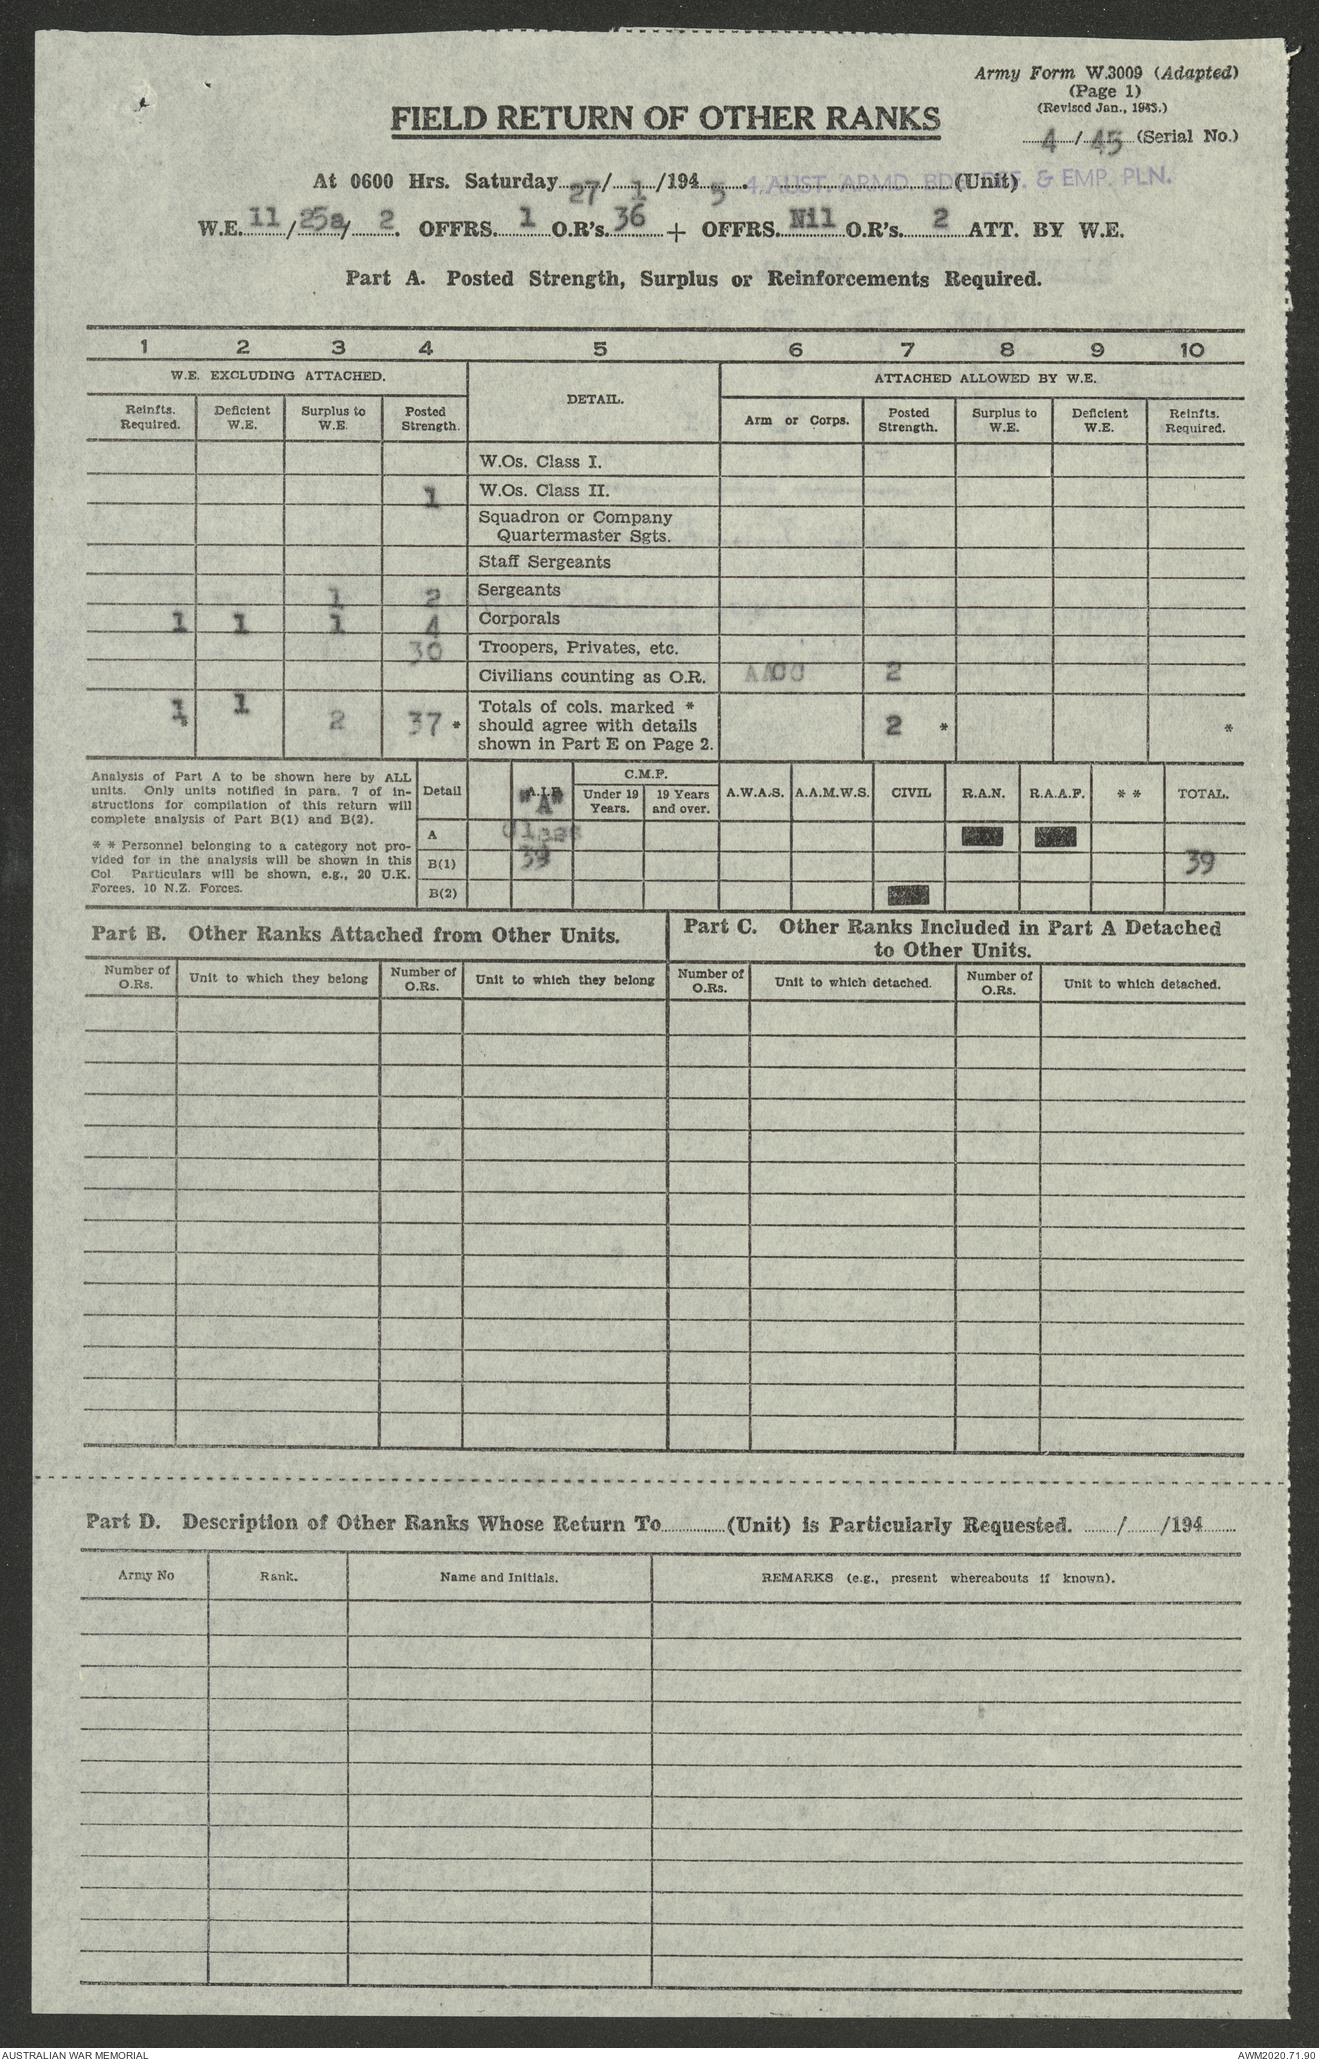 Army Form W.3009 (Adapted)
(Page 1)
(Revised Jan., 1943.)
FIELD RETURN OF OTHER RANKS
4/45 (Serial No.)
At 0600 Hrs. Saturday 27/1/1945. 4, AUST. ARMD. BDE. & EMP. PLN. (Unit)
W.E. 11/25a/2. OFFRS. 1 O.R's. 36 + OFFRS. Nil O.R's. 2 ATT. BY W.E.
Part A. Posted Strength, Surplus or Reinforcements Required.
1 2 3 4 5 6 7 8 9 10
W.E. EXCLUDING ATTACHED. DETAIL. ATTACHED ALLOWED BY W.E.
Reinfts. Required. Deficient W.E. Surplus to W.E. Posted Strength. Arm or Corps. Posted Strength. Surplus to W.E. Deficient W.E. Reinfts. Required.
W.Os. Class I.
1 W.Os. Class II.
Squadron or Company
Quartermaster Sgts.
Staff Sergeants
1 2 Sergeants
1 1 1 4 Corporals
30 Troopers, Privates, etc.
Civilians counting as O.R. AACC 2
Totals of cols. marked *
1 * 1 2 37 * should agree with details 2 * *
shown in Part E on Page 2.
Analysis of Part A to be shown here by ALL
units. Only units notified in para. 7 of in-
structions for compilation of this return will
complete analysis of Part B(1) and B(2).
* * Personnel belonging to a category not pro-
vided for in the analysis will be shown in this
Col Particulars will be shown, e.g., 20 U.K.
Forces, 10 N.Z. Forces.
Detail A.I.F. C.M.F. Under 19 Years. 19 Years and over. A.W.A.S. A.A.M.W.S. CIVIL R.A.N. R.A.A.F. * * TOTAL.
"A"
A Class
B(1) 39 39
B(2)
Part B. Other Ranks Attached from Other Units.
Part C. Other Ranks Included in Part A Detached
to Other Units.
Number of O.Rs. Unit to which they belong Number of O.Rs. Unit to which they belong Number of O.Rs. Unit to which detached. Number of O.Rs. Unit to which detached.
Part D. Description of Other Ranks Whose Return To............(Unit) is Particularly Requested. ....../....../194......
Army No Rank. Name and Initials. REMARKS (e.g., present whereabouts if known).
AUSTRALIAN WAR MEMORIAL AWM2020.71.90